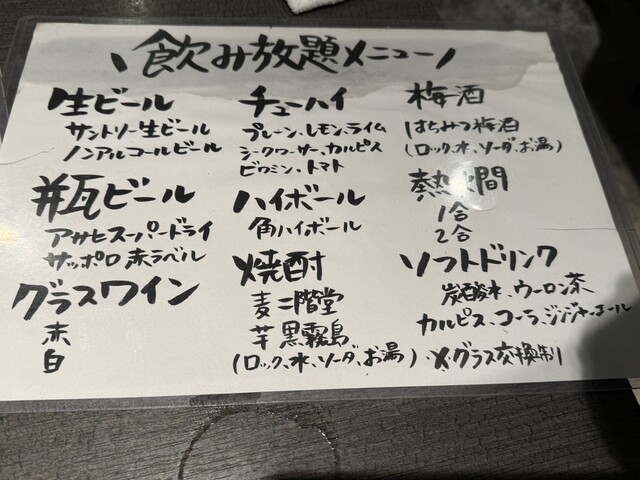 飲み放題メニュー
生ビール
サントリー生ビール
ノンアルコールビール
瓶ビール
アサヒスーパードライ
サッポロ赤ラベル
グラスワイン
赤
白
チューハイ
プレーン、レモン、ライム
シークワーサー、カルピス
ビワミン、トマト
ハイボール
角ハイボール
焼酎
麦 二階堂
芋 黒霧島
(ロック、水、ソーダ、お湯)
梅酒
はちみつ梅酒
(ロック、水、ソーダ、お湯)
熱燗
1合
2合
ソフトドリンク
炭酸水、ウーロン茶
カルピス、コーラ、ジンジャーエール
※グラス交換制